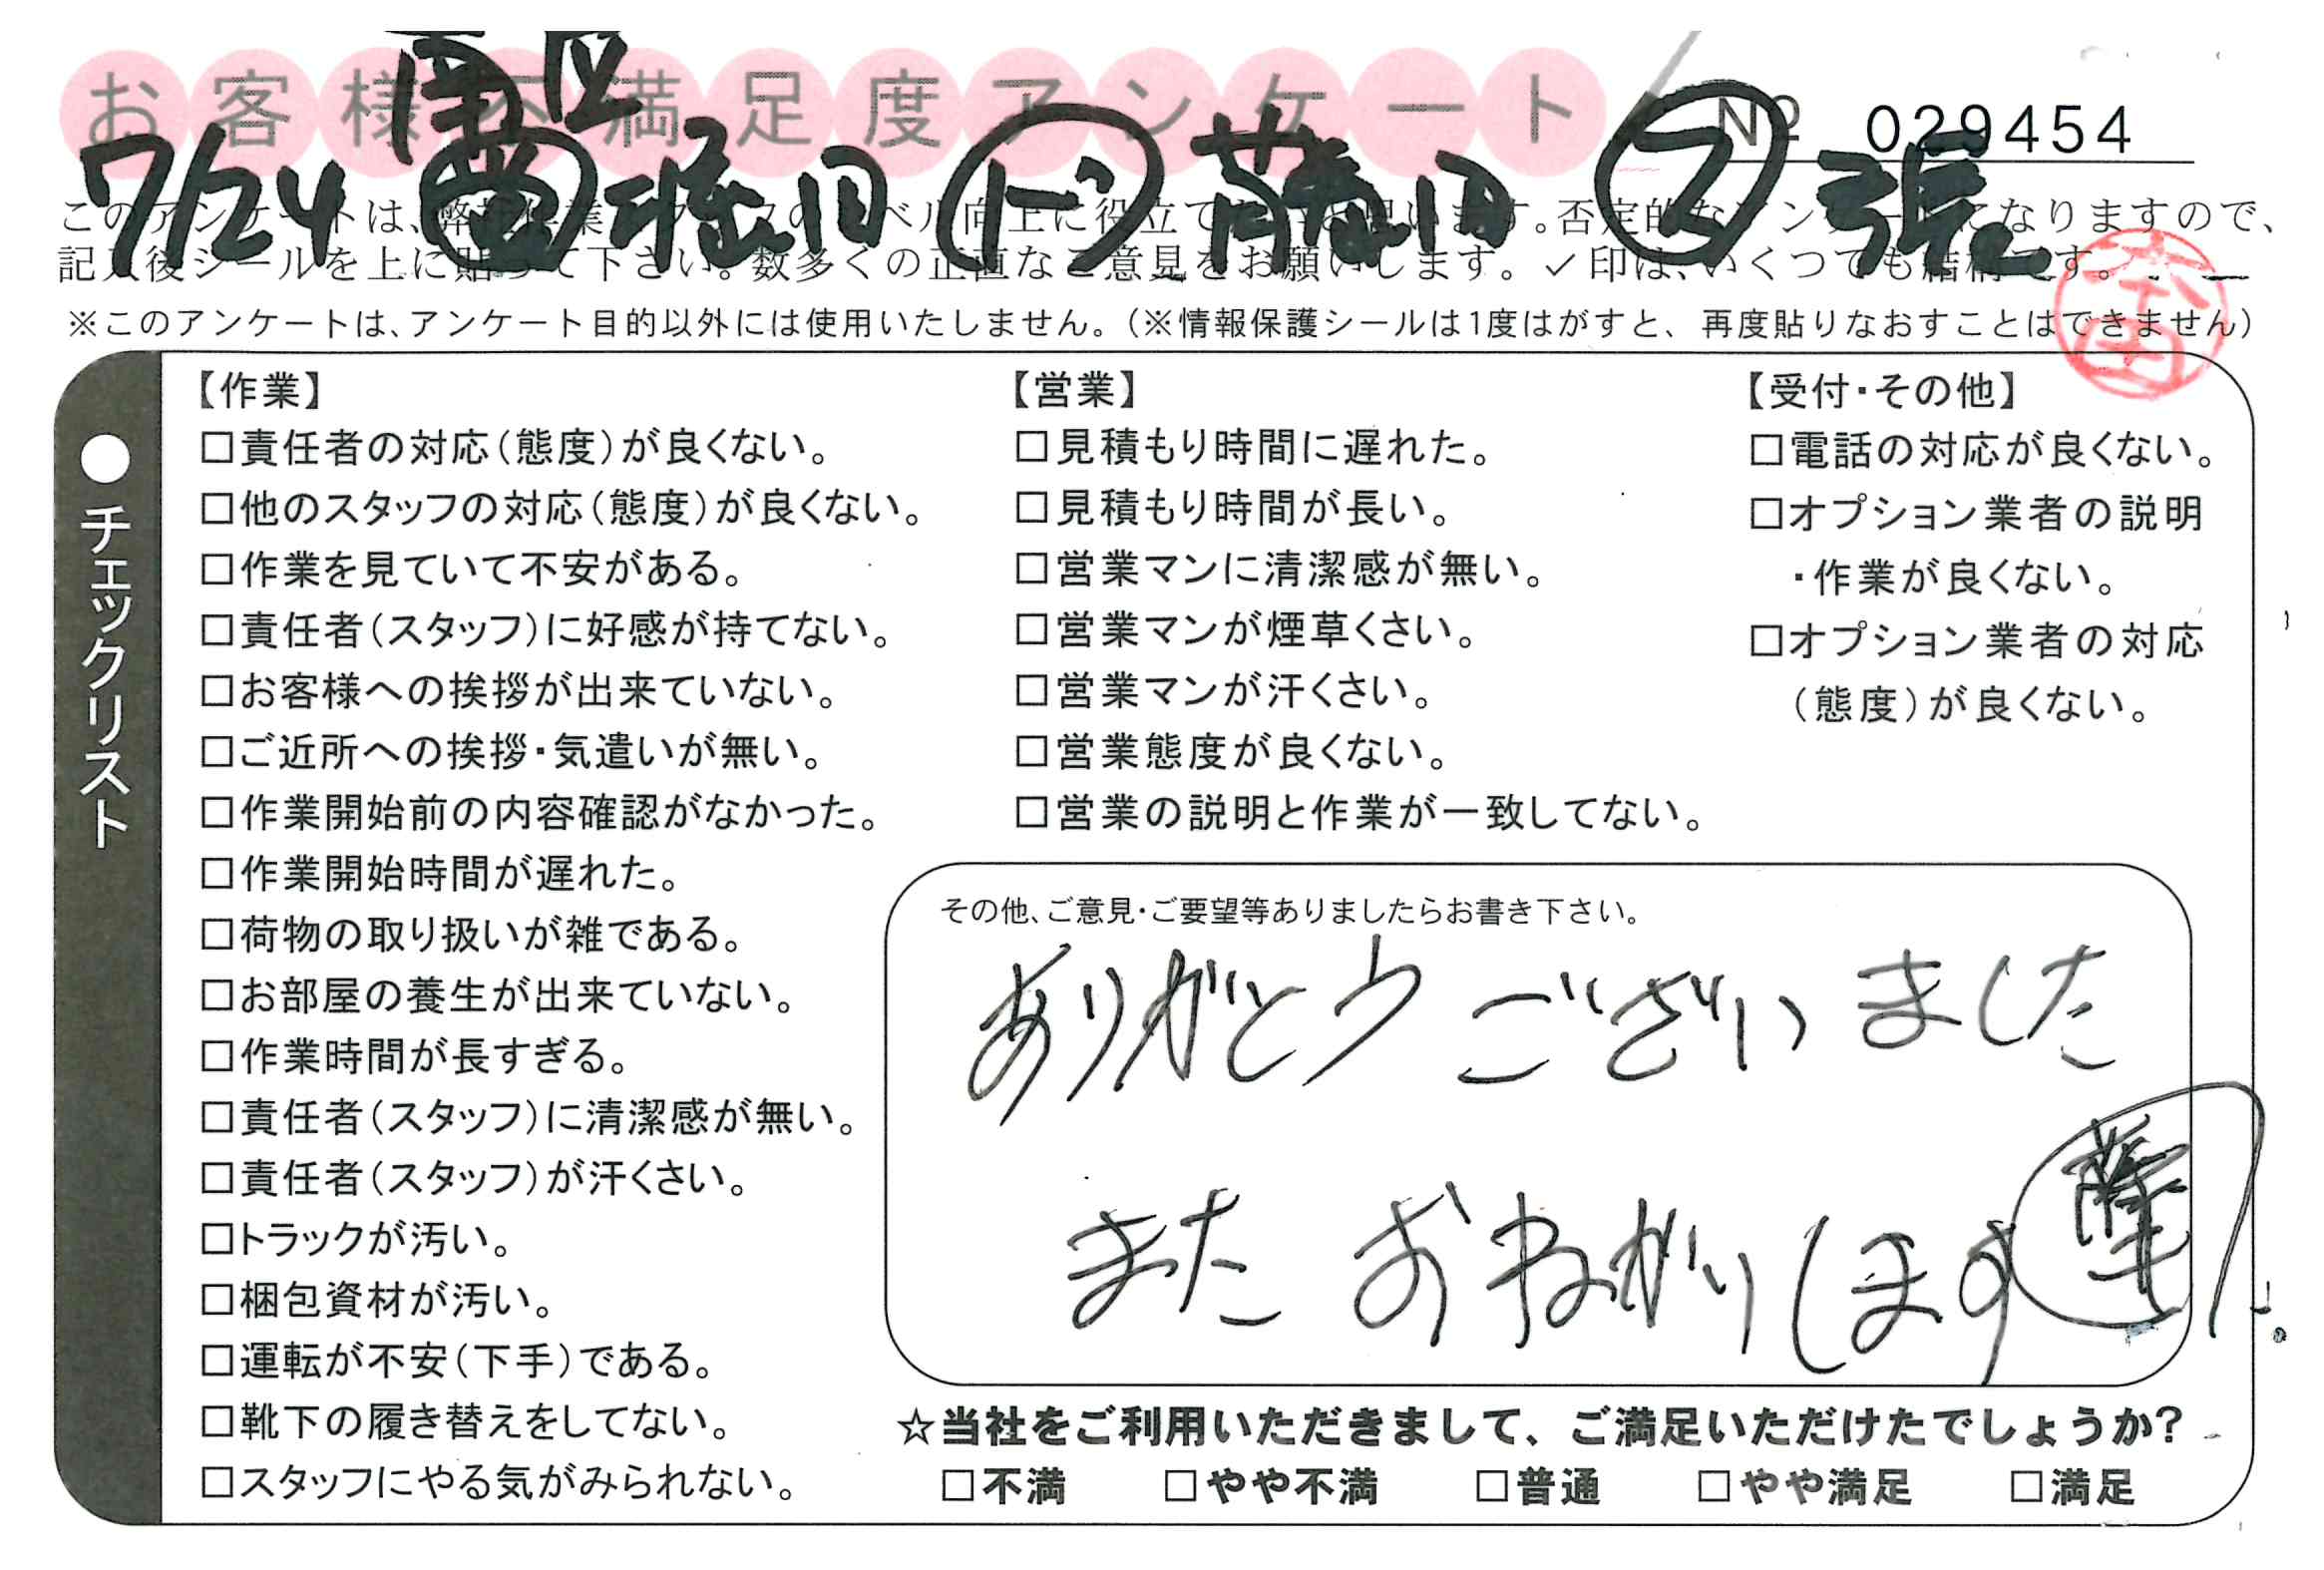 お客様不満足度アンケート
№ 029454
7/24 堀田 藤田 張
このアンケートは、弊社作業の向上に役立てます。否定的なアンケートになりますので、
記入後シールを上に貼って下さい。数多くの正直なご意見をお願いします。✓印は、いくつでも結構です。
※このアンケートは、アンケート目的以外には使用いたしません。(※情報保護シールは1度はがすと、再度貼りなおすことはできません)
本田
●チェックリスト
【作業】
□責任者の対応(態度)が良くない。
□他のスタッフの対応(態度)が良くない。
□作業を見ていて不安がある。
□責任者(スタッフ)に好感が持てない。
□お客様への挨拶が出来ていない。
□ご近所への挨拶・気遣いが無い。
□作業開始前の内容確認がなかった。
□作業開始時間が遅れた。
□荷物の取り扱いが雑である。
□お部屋の養生が出来ていない。
□作業時間が長すぎる。
□責任者(スタッフ)に清潔感が無い。
□責任者(スタッフ)が汗くさい。
□トラックが汚い。
□梱包資材が汚い。
□運転が不安(下手)である。
□靴下の履き替えをしてない。
□スタッフにやる気がみられない。
【営業】
□見積もり時間に遅れた。
□見積もり時間が長い。
□営業マンに清潔感が無い。
□営業マンが煙草くさい。
□営業マンが汗くさい。
□営業態度が良くない。
□営業の説明と作業が一致してない。
【受付・その他】
□電話の対応が良くない。
□オプション業者の説明
・作業が良くない。
□オプション業者の対応
(態度)が良くない。
その他、ご意見・ご要望等ありましたらお書き下さい。
ありがとうございました
またおねがいします
☆当社をご利用いただきまして、ご満足いただけたでしょうか?
□不満 □やや不満 □普通 □やや満足 □満足